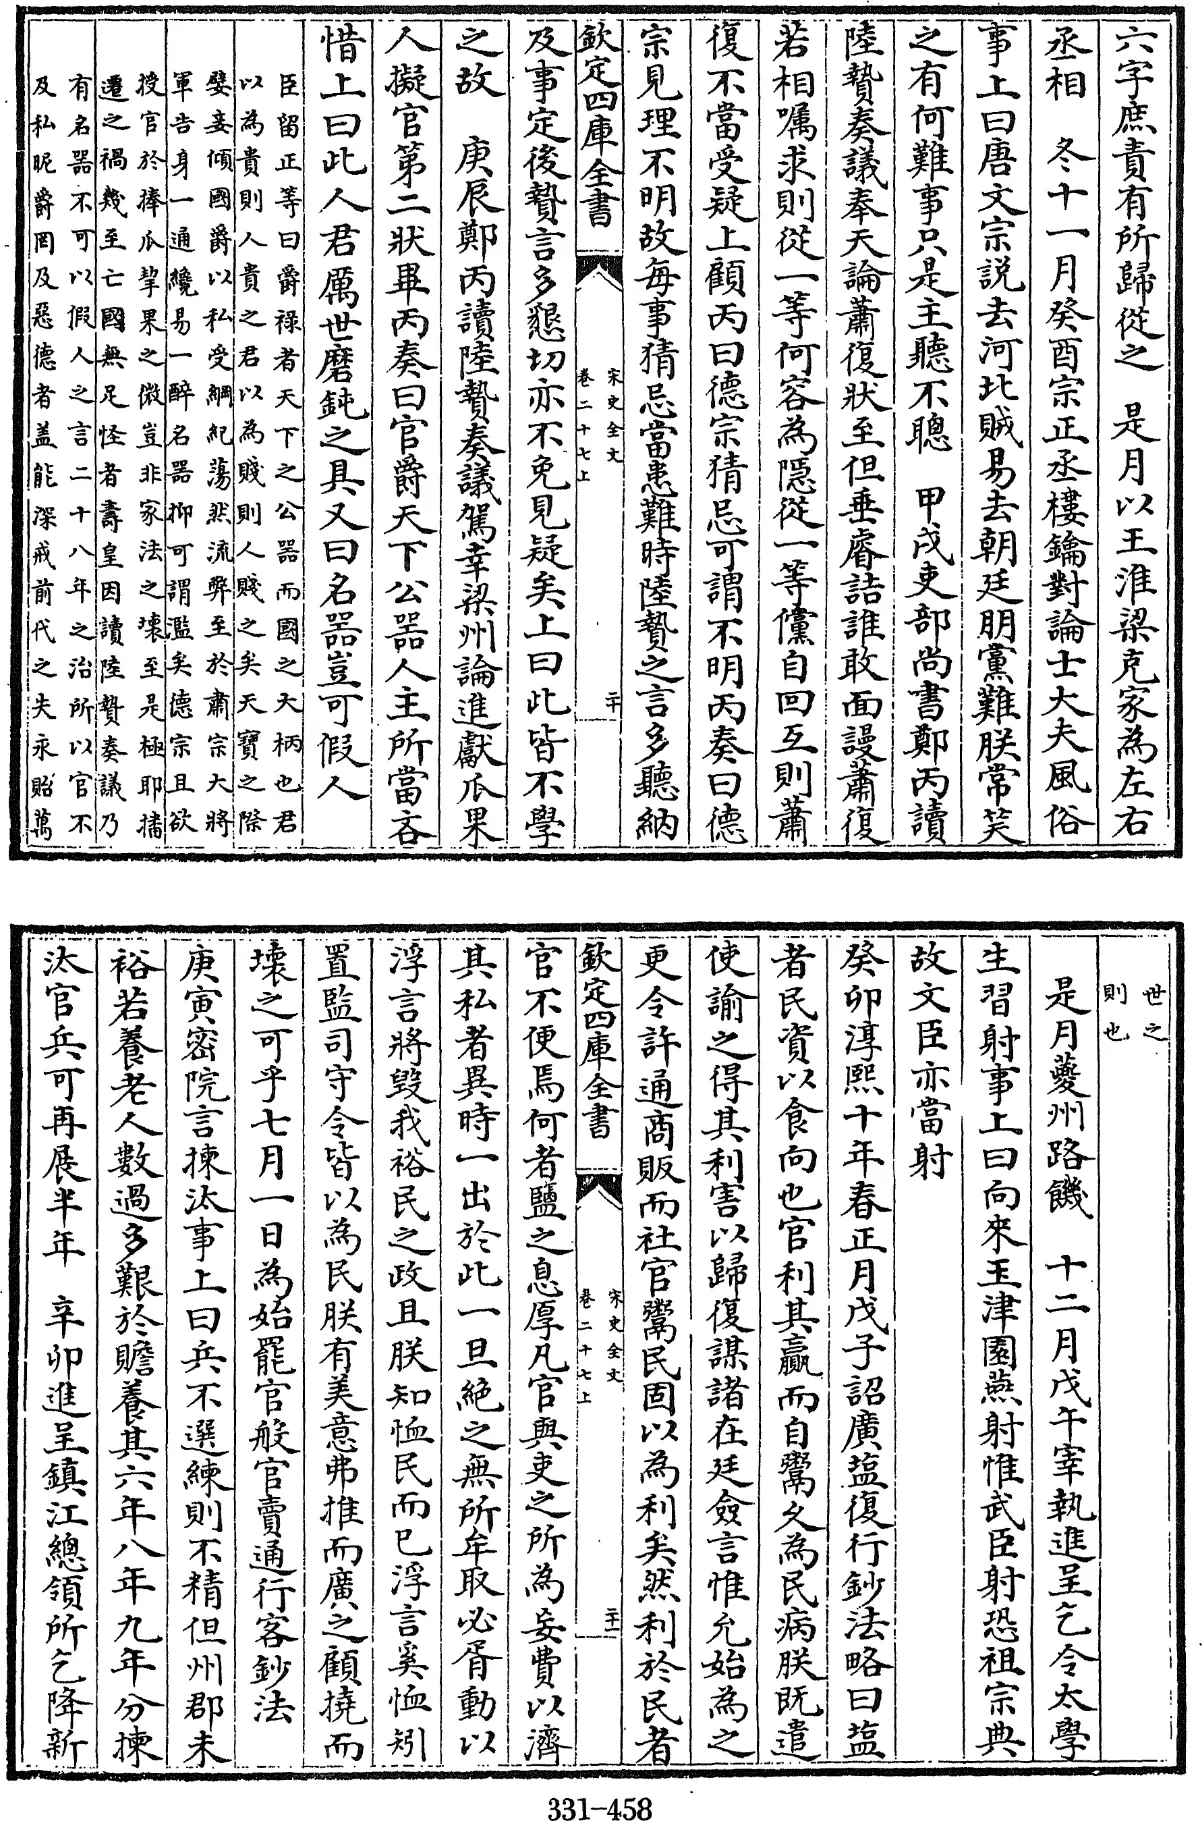 六字庶責有所歸從之　是月以王淮梁克家為左右
丞相　冬十一月癸酉宗正丞樓鑰對論士大夫風俗
事上曰唐文宗説去河北賊易去朝廷朋黨難朕常笑
之有何難事只是主聽不聰　甲戌吏部尚書鄭丙讀
陸贄奏議奉天論蕭復狀至但垂睿詰誰敢面謾蕭復
若相嘱求則從一等何容為隱從一等儻自回互則蕭
復不當受疑上顧丙曰德宗猜忌可謂不明丙奏曰德
宗見理不明故每事猜忌當患難時陸贄之言多聽納
欽定四庫全書　宋史全文卷二十七上　二十
及事定後贄言多懇切亦不免見疑矣上曰此皆不學
之故　庚辰鄭丙讀陸贄奏議駕幸梁州論進獻瓜果
人擬官第二狀畢丙奏曰官爵天下公器人主所當吝
惜上曰此人君厲世磨鈍之具又曰名器豈可假人
臣留正等曰爵祿者天下之公器而國之大柄也君
以為貴則人貴之君以為賤則人賤之矣天寶之際
嬖妾傾國爵以私受綱紀蕩然流弊至於肅宗大將
軍告身一通纔易一醉名器抑可謂濫矣德宗且欲
授官於捧瓜挈果之微豈非家法之壊至是極耶播
遷之禍幾至亡國無足怪者壽皇因讀陸贄奏議乃
有名器不可以假人之言二十八年之治所以官不
及私昵爵罔及惡德者盖能深戒前代之失永貽萬
世之
則也
是月夔州路饑　十二月戊午宰執進呈乞令太學
生習射事上曰向來玉津園燕射惟武臣射恐祖宗典
故文臣亦當射
癸卯淳熙十年春正月戊子詔廣盐復行鈔法略曰盐
者民資以食向也官利其贏而自鬻久為民病朕既遣
使諭之得其利害以歸復謀諸在廷僉言惟允始為之
更令許通商販而社官鬻民固以為利矣然利於民者
欽定四庫全書　宋史全文卷二十七上　二十一
官不便焉何者鹽之息厚凡官與吏之所為妄費以濟
其私者異時一出於此一旦絶之無所牟取必胥動以
浮言將毀我裕民之政且朕知恤民而已浮言奚恤矧
置監司守令皆以為民朕有美意弗推而廣之顧撓而
壊之可乎七月一日為始罷官般官賣通行客鈔法
庚寅密院言揀汰事上曰兵不選練則不精但州郡未
裕若養老人數過多艱於贍養其六年八年九年分揀
汰官兵可再展半年　辛卯進呈鎮江總領所乞降新
331-458